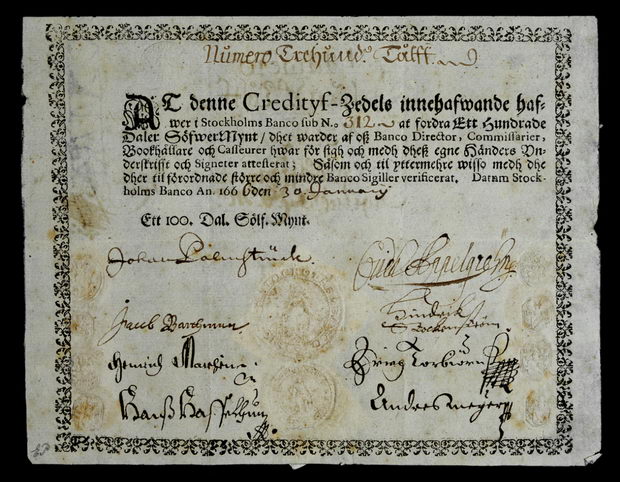 Numero Trehund: Tålff.
AT denne Credityf-Zedels innehafwande haf-
wer i Stockholms Banco sub N.o 312 at fordra Ett Hundrade
Daler Söfwer Mynt / dhet warder af oß Banco Director, Commissarier,
Bookhållare och Casseurer hwar för sigh och medh dheß egne Händers Vn-
derskrifft och Signeter attesterat; Såsom och til yttermehre wisso medh dhe
dher til förordnade större och mindre Banco Sigiller verificerat. Datum Stock-
holms Banco An. 1666 den 30 January
Ett 100. Dal. Sölf. Mynt.
Johan Palmstruck
Hindrich
Jacob Barchman
Hanß
Anders Meyer